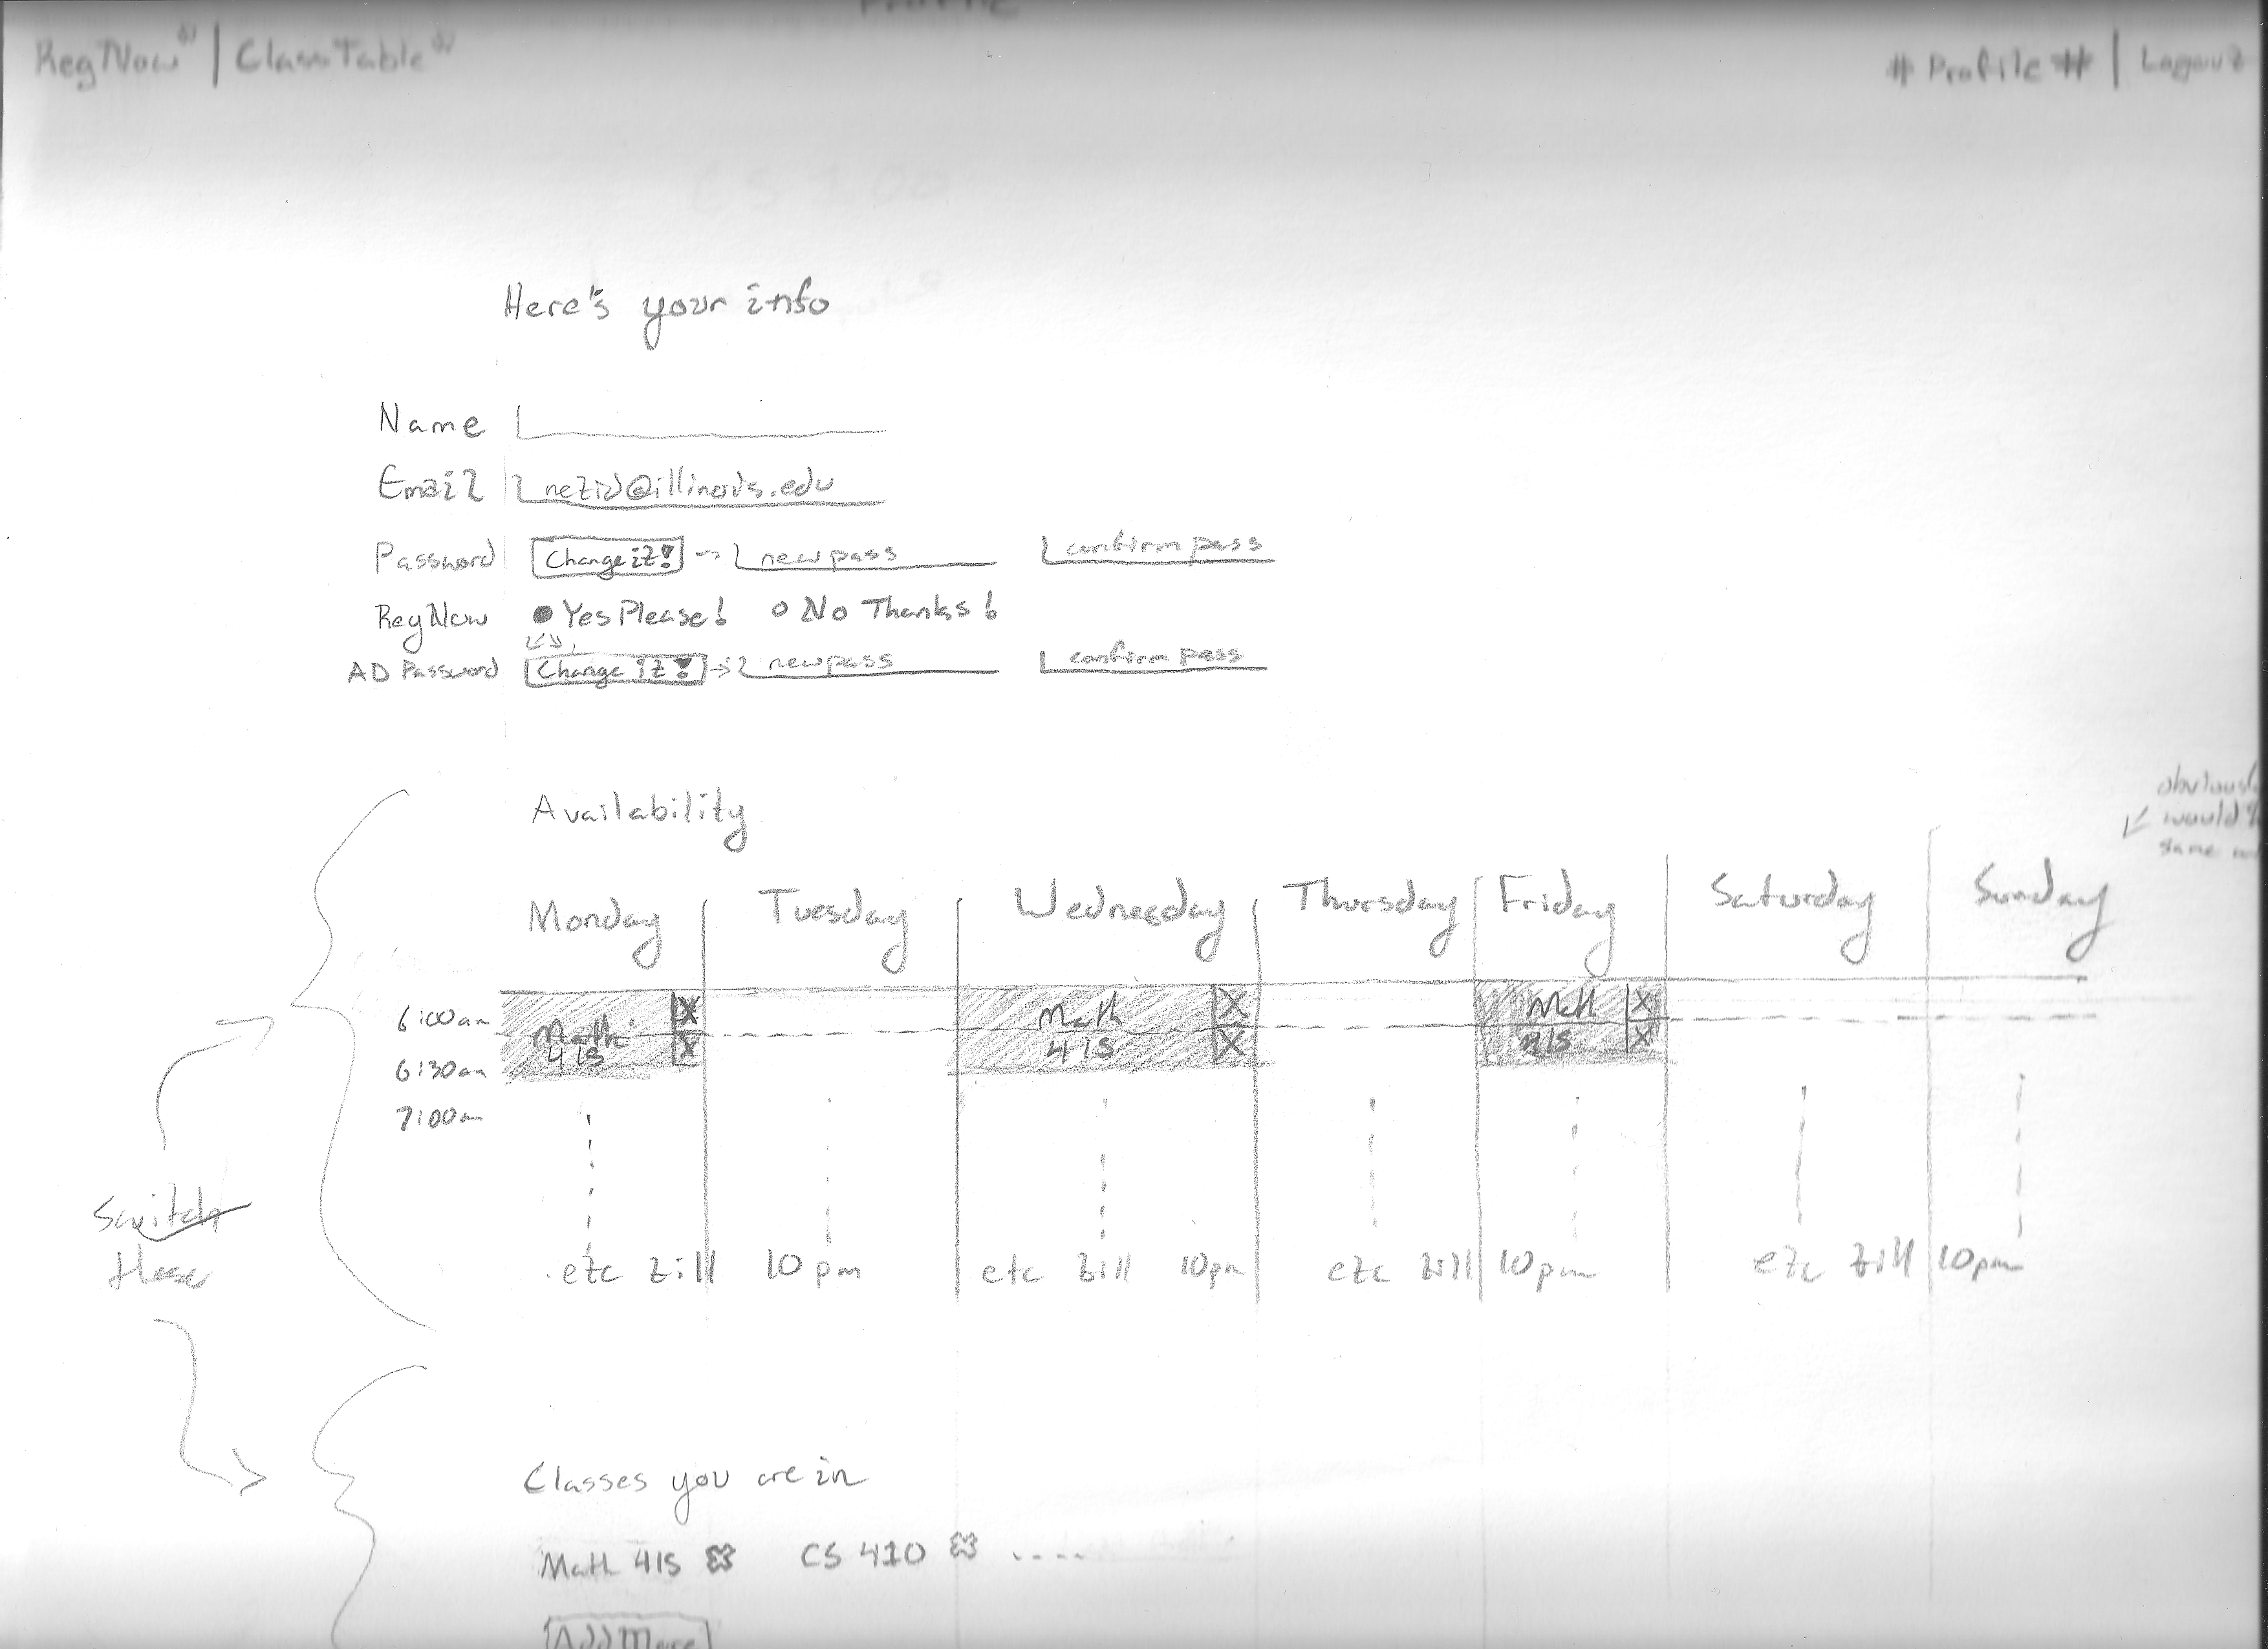 Profile
RegNow | ClassTable
# Profile # | Logout
Here's your info
Name
Email netid@illinois.edu
Password Change it! -> new pass confirm pass
RegNow Yes Please! No Thanks!
AD Password Change it! -> new pass confirm pass
obviously
would
same
Availability
Monday Tuesday Wednesday Thursday Friday Saturday Sunday
6:00am Math X Math X Math X
415 X 415 X 415 X
6:30am
7:00am
Switch
these
etc till 10pm etc till 10pm etc till 10pm etc till 10pm
Classes you are in
Math 415 CS 410 ....
Add More